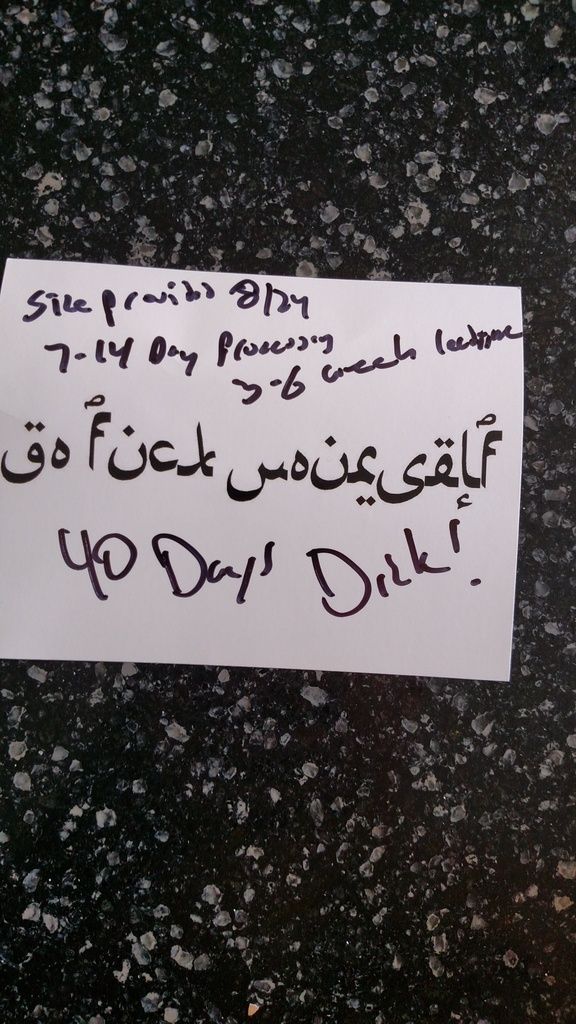 Size provided 8/24
7-14 Day Processing
3-6 week leadtime
go fuck yourself
40 Days Dick!